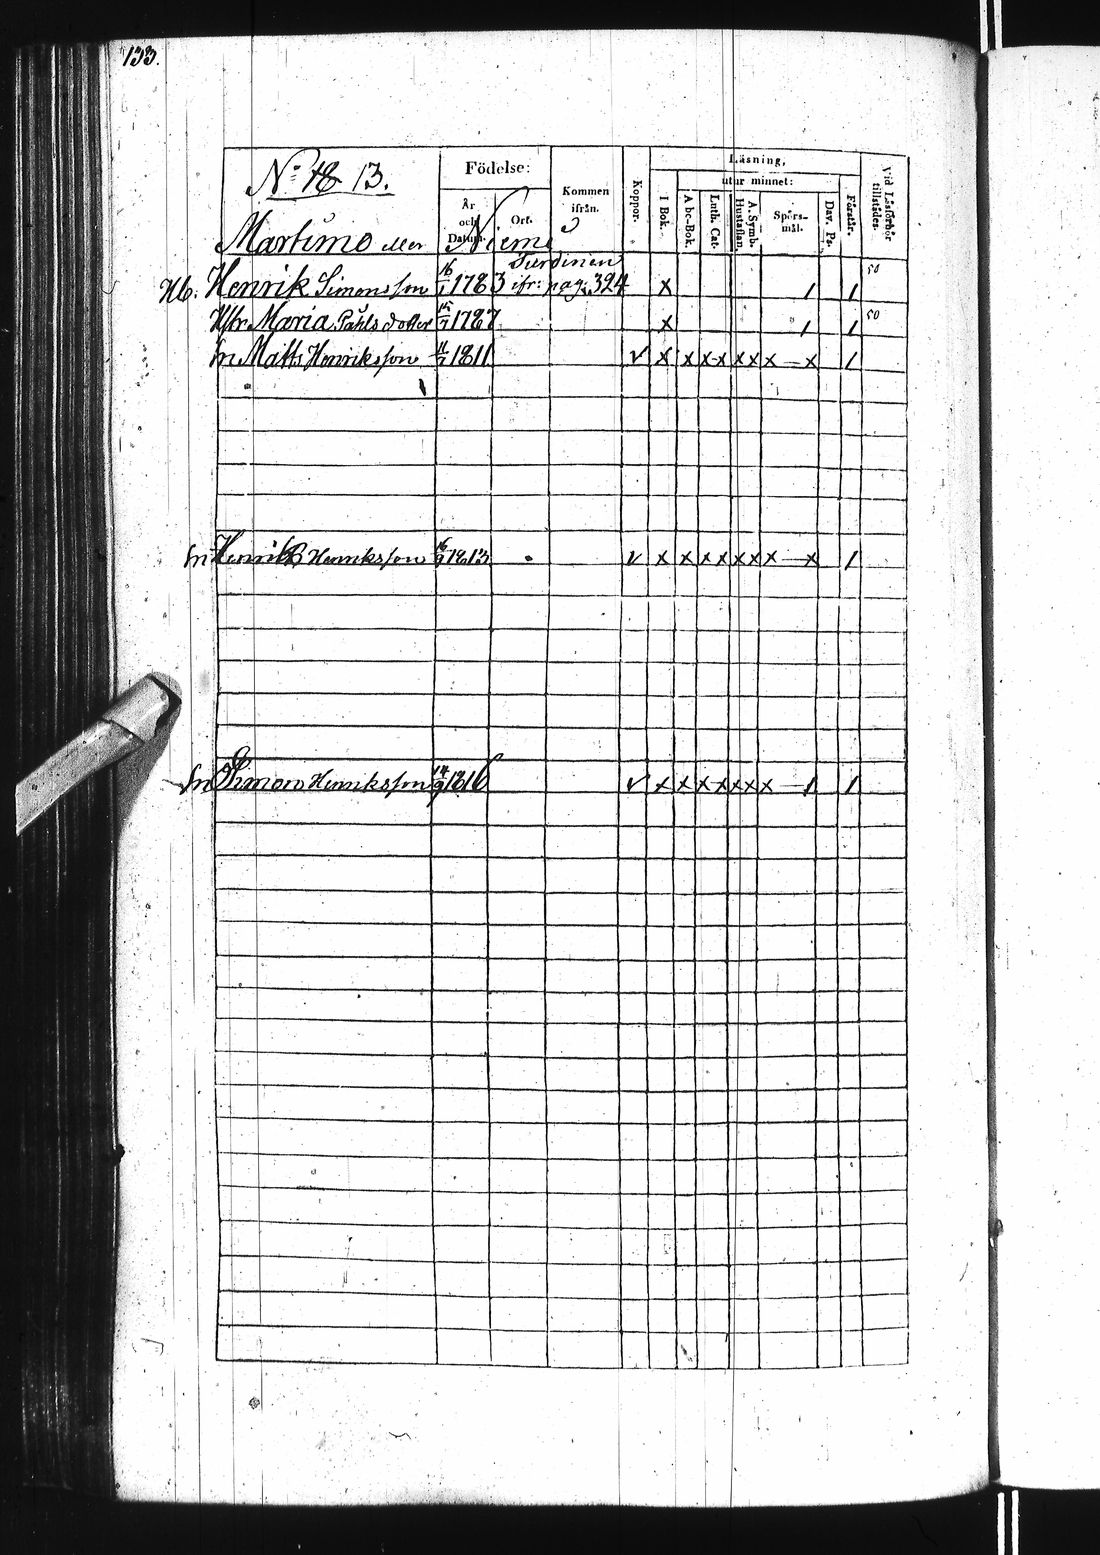 133.
N:o 18 13.
Martimo eller Niemi
Födelse:
År och Datum.
Ort.
Kommen ifrån.
Koppor.
Läsning,
utur minnet:
I Bok.
Abc-Bok.
Luth. Cat.
Hustaflan.
A. Symb.
Spörs-mål.
Dav. Ps.
Förstår.
Vid Läsförhör tillstädes.
Hb. Henrik Simonsson 16/1 1783 ifr: pag: 324 x 1 1 50
Hstr Maria Påhlsdotter 1787 x 1 1 50
Sn Matts Henriksson 1811 v x x x x x x x — x 1
Sn Henrik Henriksson 1813 v x x x x x x x — x 1
Sn Simon Henriksson 14/9 1816 v x x x x x x x — 1 1